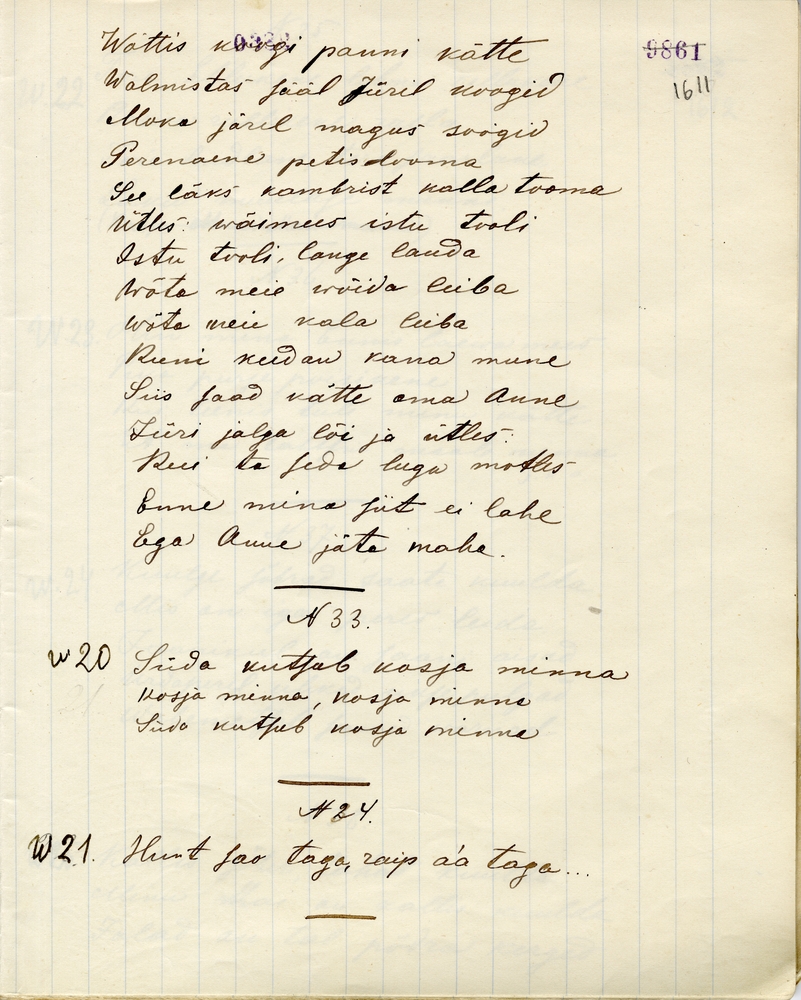 9861
1611
Wõttis koogi panni kätte
Walmistas sääl Jüril koogid
Moka järel magus söögid
Perenaene petis looma
See läks kambrist kalla tooma
Ütles: wäimees istu tooli
Istu tooli, lange lauda
Wõta meie wõida leiba
Wõta meie kala leiba
Kuni keedan kana mune
Siis saad kätte oma Anne
Jüri jalga lõi ja ütles:
Kui ta seda lugu mõtles
Enne mina siit ei lähe
Ega Anne jäta maha.
N 33.
W 20 Süda kutsub kosja minna
Kosja minna, kosja minna
Süda kutsub kosja minna
N 24.
W 21. Hunt sao taga, raip a'a taga...